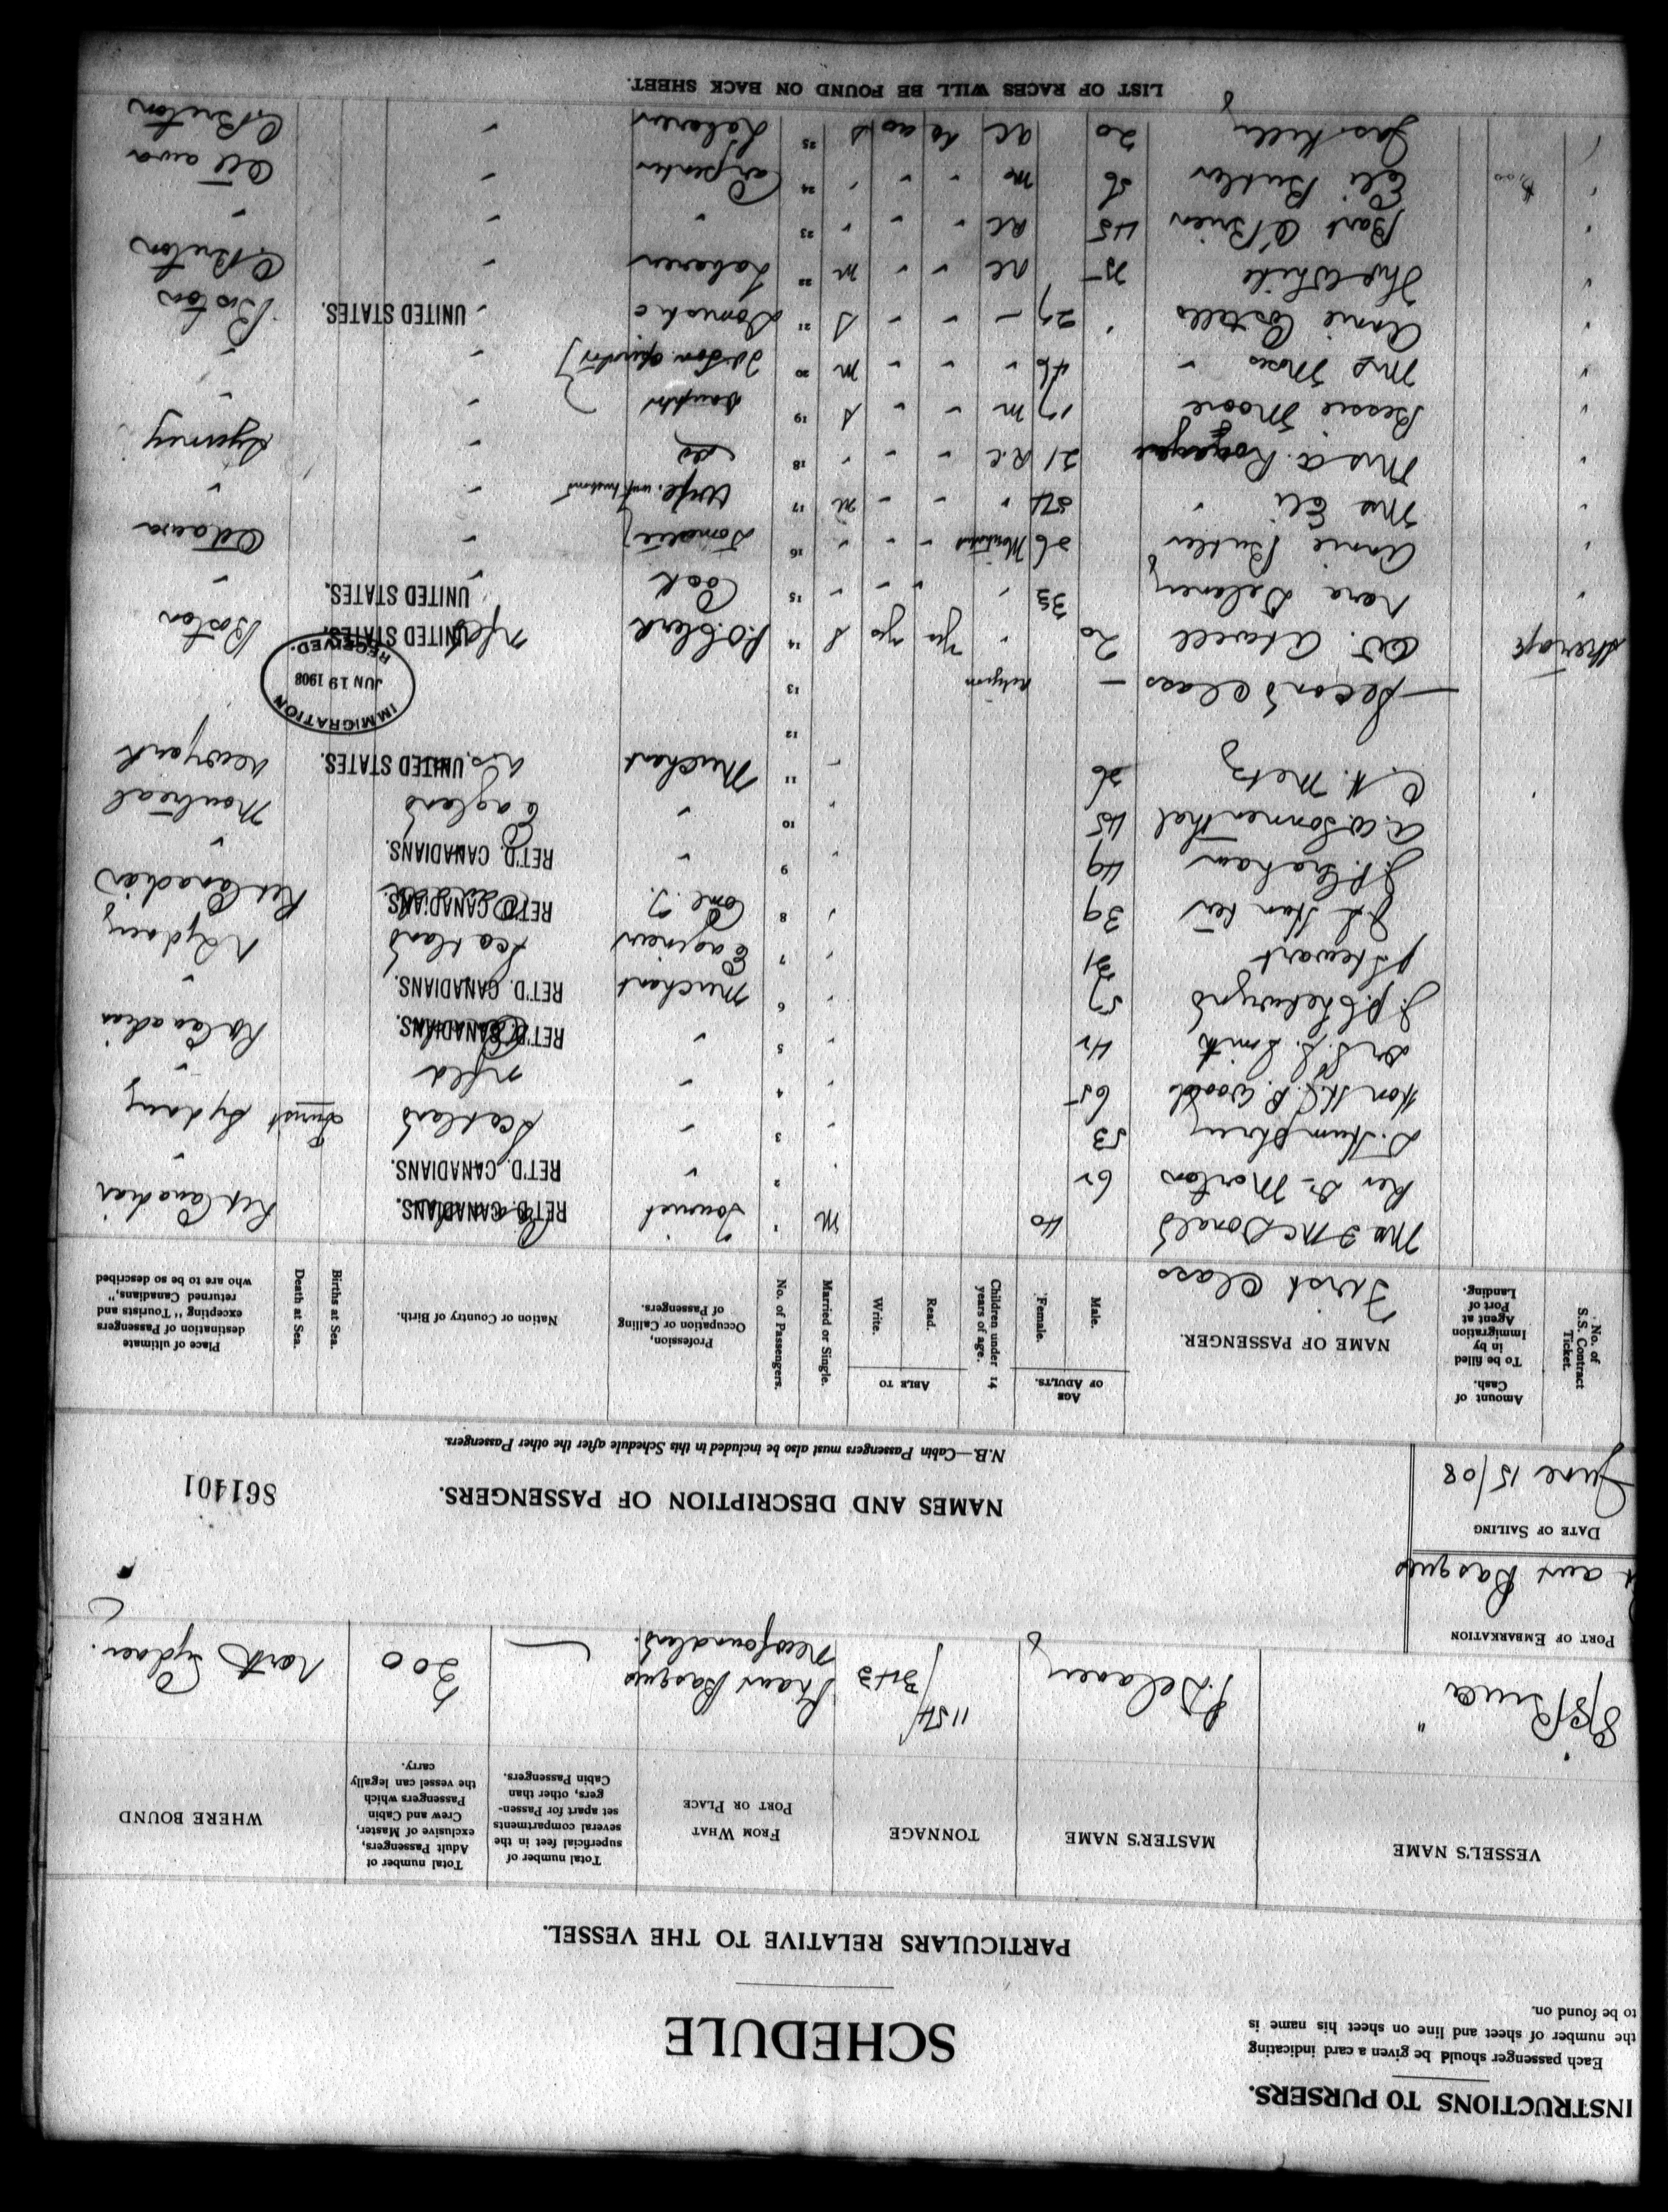 INSTRUCTIONS TO PURSERS.
Each passenger should be given a card indicating
the number of sheet and line on sheet his name is
to be found on.
SCHEDULE
PARTICULARS RELATIVE TO THE VESSEL.
VESSEL'S NAME MASTER'S NAME TONNAGE FROM WHAT PORT OR PLACE Total number of superficial feet in the several compartments set apart for Passengers, other than Cabin Passengers. Total number of Adult Passengers, exclusive of Master, Crew and Cabin Passengers which the vessel can legally carry. WHERE BOUND
S/S Bruce " Delaney 1154/343 Basques Newfoundland. 200 North Sydney.
PORT OF EMBARKATION
aux Basques
DATE OF SAILING
June 15/08
NAMES AND DESCRIPTION OF PASSENGERS. 861401
N.B.—Cabin Passengers must also be included in this Schedule after the other Passengers.
No. of S.S. Contract Ticket. Amount of Cash. To be filled in by Immigration Agent at Port of Landing. NAME OF PASSENGER. AGE OF ADULTS. Male. Female. Children under 14 years of age. ABLE TO Read. Write. Married or Single. No. of Passengers. Profession, Occupation or Calling of Passengers. Nation or Country of Birth. Births at Sea. Death at Sea. Place of ultimate destination of Passengers excepting "Tourists and returned Canadians," who are to be so described
First Class
McDonald 40 M 1 Tourist RET'D. CANADIANS. Ret Canadian
Rev Dr Morton 62 " 2 " RET'D. CANADIANS. "
D. Humphrey 53 " 3 " Scotland Tourist Sydney
Hon H.J.B. Woods 65 " 4 " nfld "
Smith 42 " 5 " RET'D. CANADIANS. Ret Canadian
J.P. Chetwynd 57 " 6 Merchant RET'D. CANADIANS. "
J Stewart 31 " 7 Engineer Scotland N Sydney
39 " 8 Com. T. RET'D. CANADIANS. Ret Canadian
Graham 49 " 9 " RET'D. CANADIANS. "
A.W. Sonnenthal 45 " 10 " England Montreal
C. H. Metz 26 " 11 Merchant U.S. UNITED STATES. New York
12
— Second Class — Religion 13
IMMIGRATION JUN 19 1908 RECEIVED.
Steerage Atwell 20 " Yes Yes S 14 P.O. Clerk nfld UNITED STATES. Boston
" Nora Delaney 33 " " " " 15 Cook " UNITED STATES. "
" Annie Butler 26 Methodist " " " 16 Domestic " Ottawa
" Mrs Eli " 54 " " " M 17 Wife " "
" Mrs A. 21 R.C. " " " 18 do " Sydney
" Bessie Moore 17 M " " S 19 Daughter " "
" Mrs Moses " 46 " " " M 20 " "
" Annie Costello 27 " " " S 21 Domestic " UNITED STATES. Boston
" Thos White 25 RC " " M 22 Laborer " C Breton
" Bart O'Brien 45 RC " " " 23 " " "
" Eli Butler 56 Me " " " 24 Carpenter " Ottawa
Jas Kelly 20 RC S 25 Laborer " C Breton
LIST OF RACES WILL BE FOUND ON BACK SHEET.